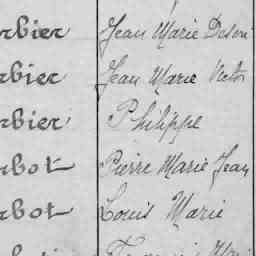 rbier Jean Marie Désiré
rbier Jean Marie Victor
rbier Philippe
rbot Pierre Marie Jean
rbot Louis Marie